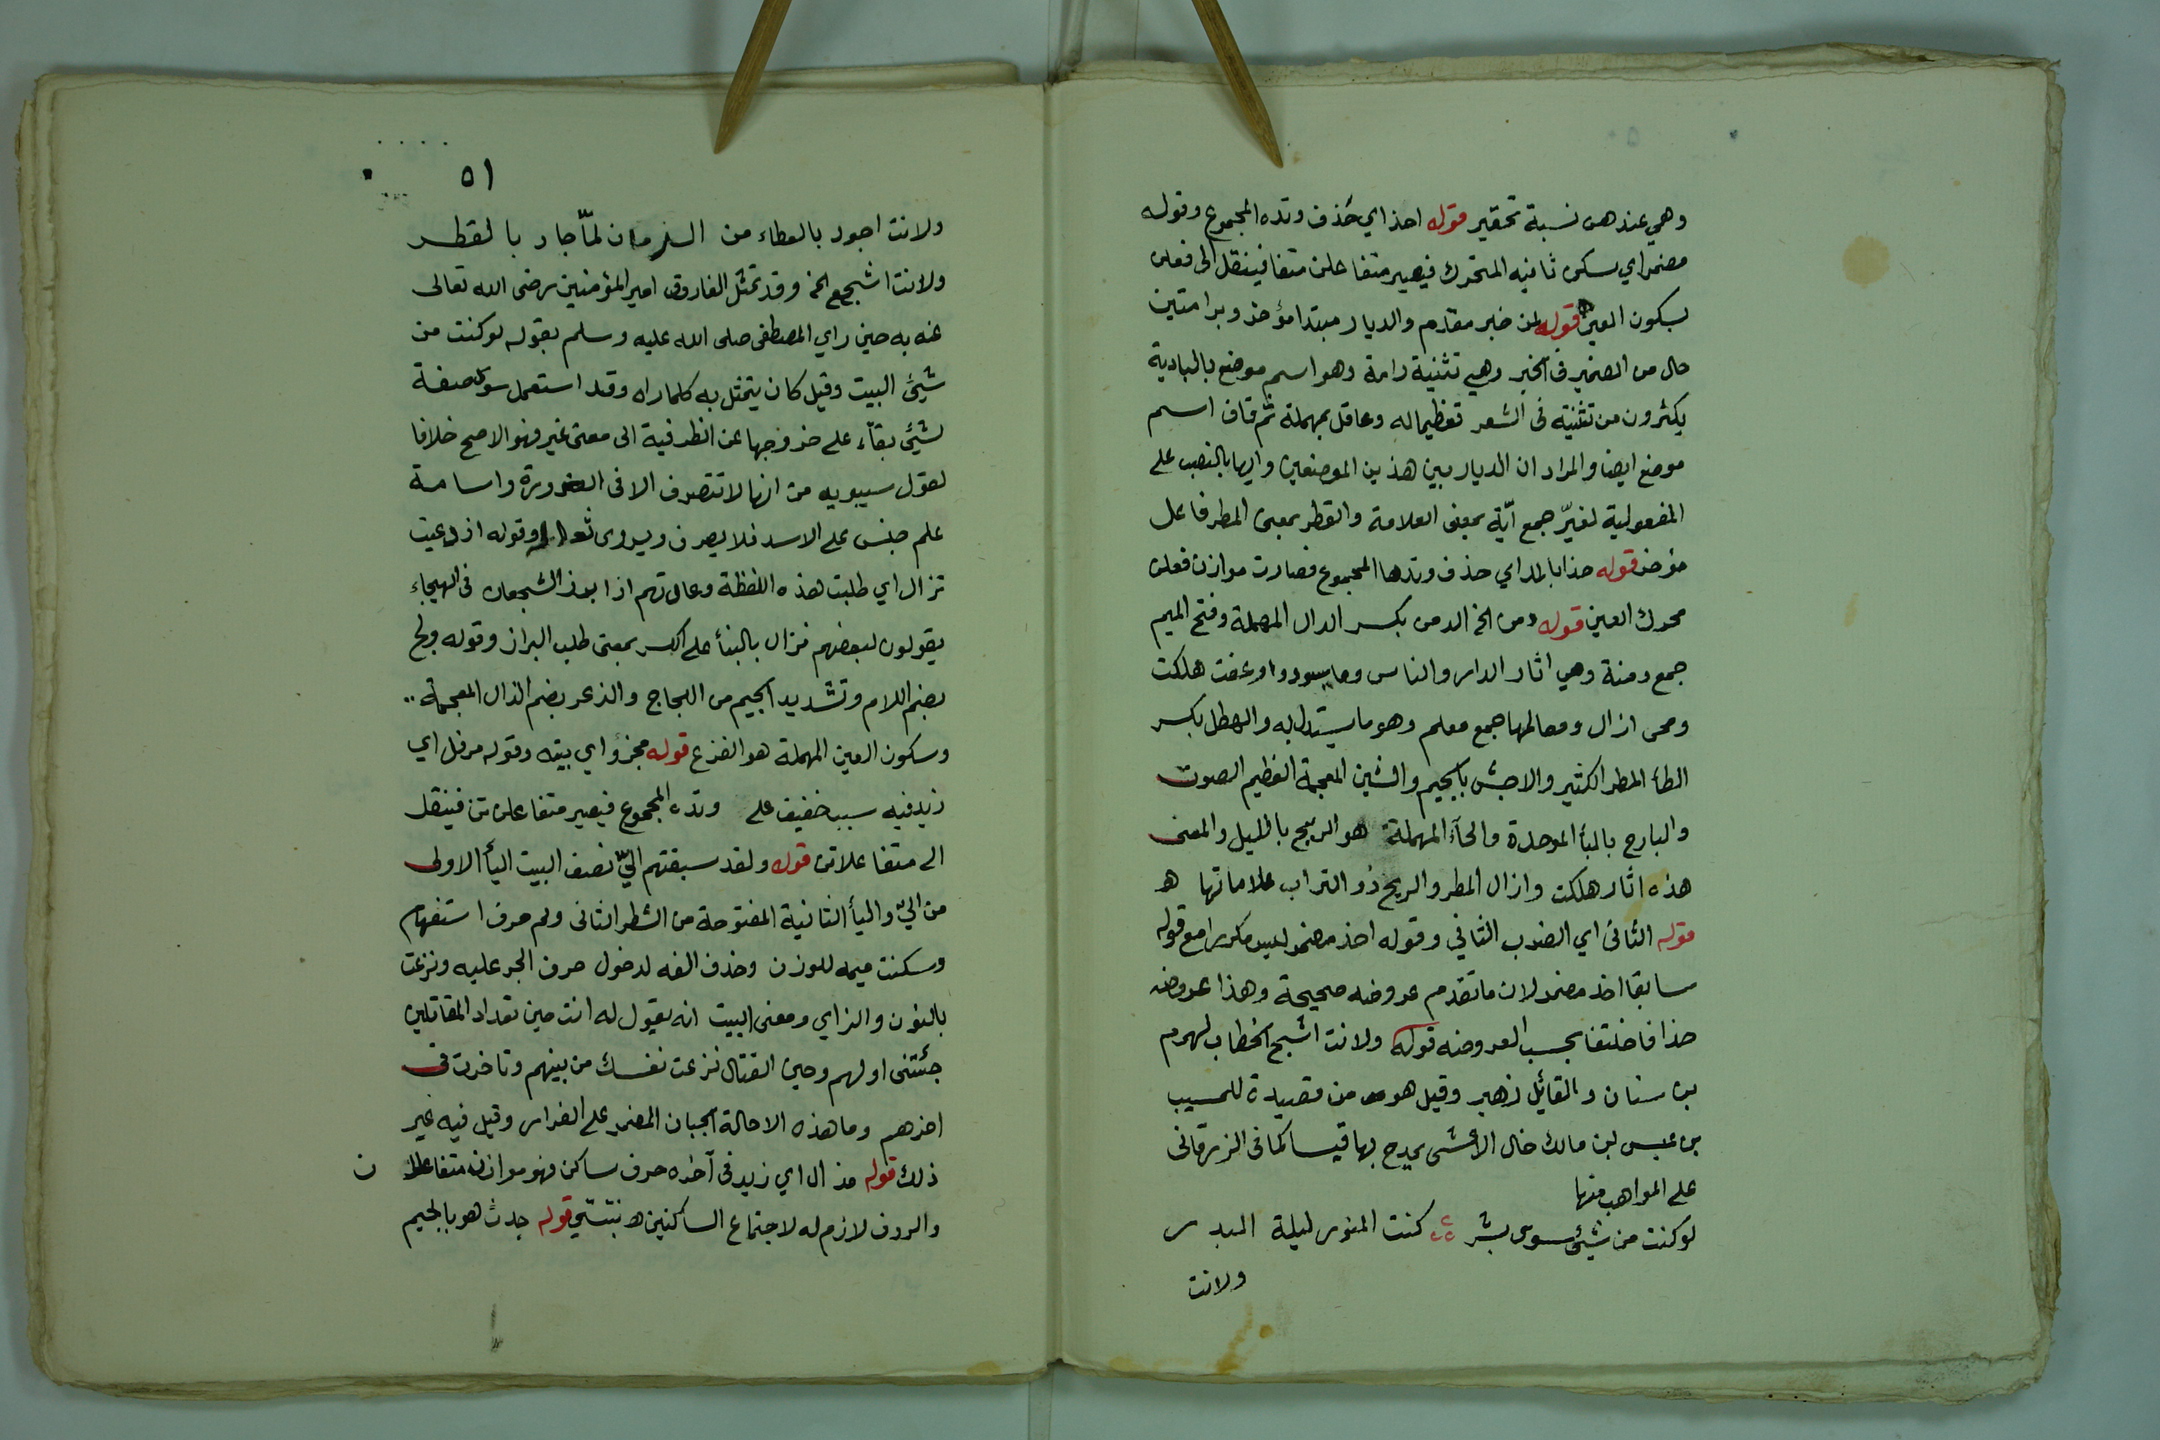 وهي عندهن نسبة تحقير قوله احذ اي حذف وتده المجموع وقوله
مضمر اي سكن ثانيه المتحرك فيصير متفاعلن متفا فينقل الى فعلن
بسكون العين قوله لمن خبر مقدم والديار مبتدا مؤخر وبرامتين
حال من الضمير في الخبر وهي تثنية رامة وهو اسم موضع بالبادية
يكثرون من تثنيته في الشعر تعظيما له وعاقل بمهملة ثم قاف اسم
موضع ايضا والمراد ان الديار بين هذين الموضعين وايها بالنصب على
المفعولية لغيّر جمع آية بمعنى العلامة والقطر بمعنى المطر فاعل
مؤخر قوله حذا بالمد اي حذف وتدها المجموع فصارت موازن فعلن
محرك العين قوله دمن الخ الدمن بكسر الدال المهملة وفتح الميم
جمع دمنة وهي اثار الدار والناس وما سودوا وعفت هلكت
ومحى ازال ومعالمها جمع معلم وهو ما يستدل به والهطل بكسر
الطاء المطر الكثير والاجش بالجيم والشين المعجمة العظيم الصوت
والبارح بالبأ الموحدة والحآء المهملة هو الريح بالليل والمعنى
هذه اثار هلكت وازال المطر والريح ذو التراب علاماتها ه
قوله الثانى اي الضرب الثاني وقوله احذ مضمر ليس مكررا مع قوله
سابقا احذ مضمر لان ما تقدم عروضه صحيحة وهذا عروضه
حذا فاختلفا بحسب العروضه قوله ولانت اشجع الخطاب لهرم
بن سنان والقائل زهير وقيل هو من قصيدة للمسيب
بن عبس بن مالك خال الاعشى يمدح بها قيسا كما في الزرقانى
على المواهب منها
لوكنت من شيئ سوى بشر كنت المنور ليلة البدر
ولانت
٥١
ولانت اجود بالعطاء من الزمان لمّا جاد بالقطر
ولانت اشجع الخ وقد تمثل الفاروق امير المؤمنين رضى الله تعالى
عنه به حين راي المصطفى صلى الله عليه وسلم بقوله لوكنت من
شيئ البيت وقيل كان يتمثل به كلما راه وقد استعمل سوى صفة
لشيئ بقاء على خروجها عن الظرفية الى معنى غير وهو الاصح خلافا
لقول سيبويه من انها لا تتصرف الا فى الضرورة واسامة
علم جنس على الاسد فلا يصرف ويروى وقوله اذ دعيت
نزال اي طلبت هذه اللفظة وعادتهم اذا برز الشجعان فى الهيجاء
يقولون لبعضهم نزال بالبنأ على الكسر بمعنى طلب البراز وقوله ولج
بضم اللام وتشديد الجيم من اللجاج والذعر بضم الذال المعجمة
وسكون العين المهملة هو الفزع قوله مجزؤ اي بيته وقوله مرفل اي
زيد فيه سبب خفيف على وتده المجموع فيصير متفاعلن تن فينقل
الى متفاعلاتن قوله ولقد سبقتهم اليّ نصف البيت اليأ الاولى
من اليّ واليأ الثانية المفتوحة من الشطر الثانى ولم حرف استفهام
وسكنت ميمه للوزن وحذف الفه لدخول حرف الجر عليه ونزعت
بالنون والزاي ومعنى البيت انه يقول له انت حين تعداد المقاتلين
جئتنى اولهم وحين القتال نزعت نفسك من بينهم وتاخرت فى
اخرهم وما هذه الا حالة الجبان المضمر على الفرار وقيل فيه غير
ذلك قوله مذال اي زيد فى آخره حرف ساكن فهو موازن متفاعلان
والردف لازم له لاجتماع الساكنين ه بنتيتي قوله جدث هو بالجيم